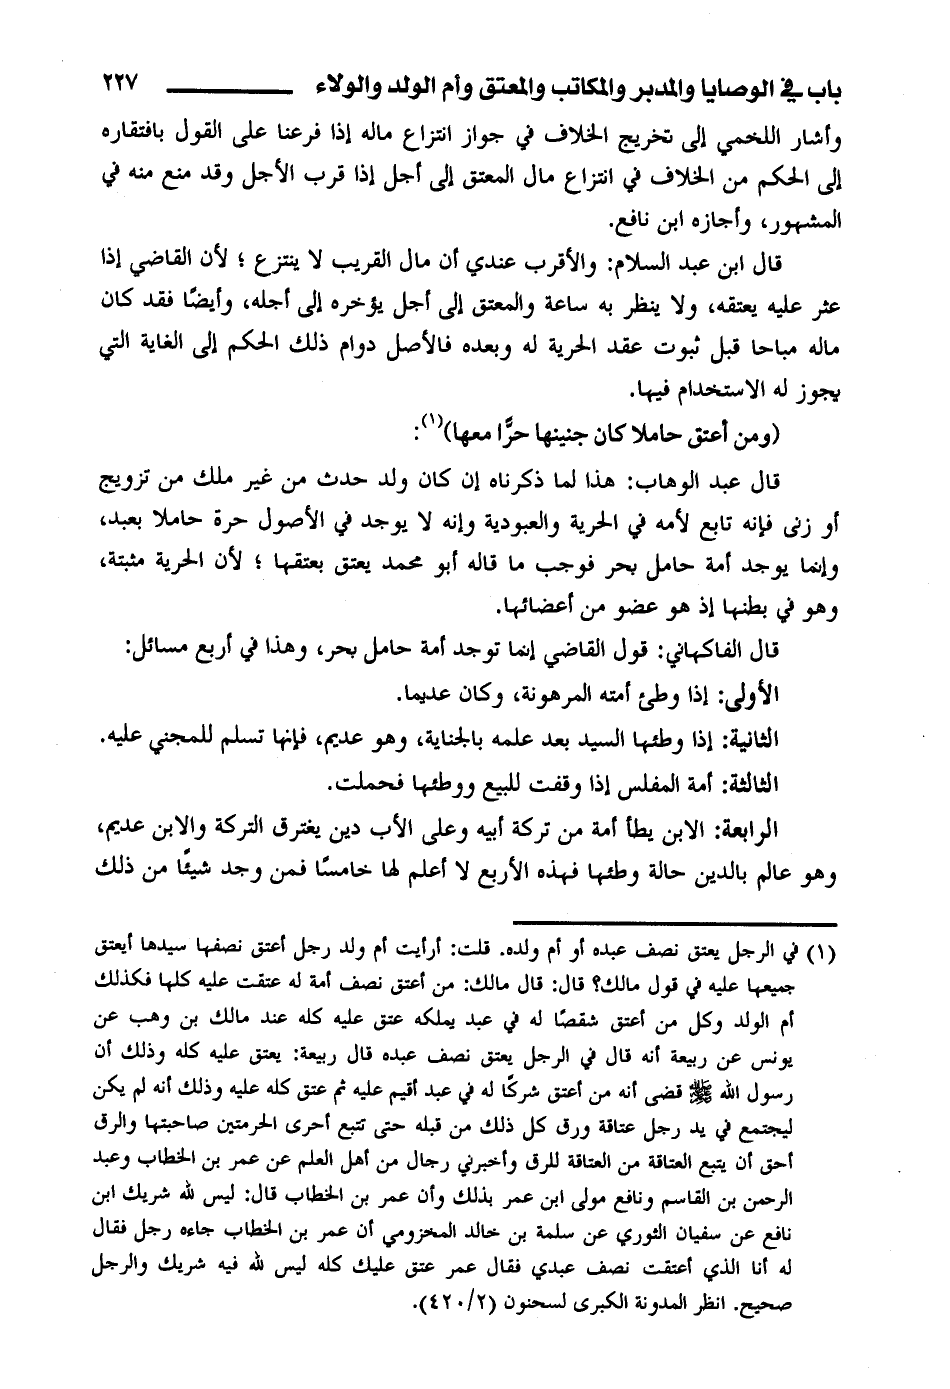 باب في الوصايا والمدبر والمكاتب والمعتق وأم الولد والولاء ــــــــــــ ٢٢٧
وأشار اللخمي إلى تخريج الخلاف في جواز انتزاع ماله إذا فرعنا على القول بافتقاره
إلى الحكم من الخلاف في انتزاع مال المعتق إلى أجل إذا قرب الأجل وقد منع منه في
المشهور، وأجازه ابن نافع.
قال ابن عبد السلام: والأقرب عندي أن مال القريب لا ينتزع ؛ لأن القاضي إذا
عثر عليه يعتقه، ولا ينظر به ساعة والمعتق إلى أجل يؤخره إلى أجله، وأيضًا فقد كان
ماله مباحا قبل ثبوت عقد الحرية له وبعده فالأصل دوام ذلك الحكم إلى الغاية التي
يجوز له الاستخدام فيها.
(ومن أعتق حاملا كان جنينها حرًّا معها)(١):
قال عبد الوهاب: هذا لما ذكرناه إن كان ولد حدث من غير ملك من تزويج
أو زنى فإنه تابع لأمه في الحرية والعبودية وإنه لا يوجد في الأصول حرة حاملا بعبد،
وإنما يوجد أمة حامل بحر فوجب ما قاله أبو محمد يعتق بعتقها ؛ لأن الحرية مثبتة،
وهو في بطنها إذ هو عضو من أعضائها.
قال الفاكهاني: قول القاضي إنما توجد أمة حامل بحر، وهذا في أربع مسائل:
الأولى: إذا وطئ أمته المرهونة، وكان عديما.
الثانية: إذا وطئها السيد بعد علمه بالجناية، وهو عديم، فإنها تسلم للمجني عليه.
الثالثة: أمة المفلس إذا وقفت للبيع ووطئها فحملت.
الرابعة: الابن يطأ أمة من تركة أبيه وعلى الأب دين يغترق التركة والابن عديم،
وهو عالم بالدين حالة وطئها فهذه الأربع لا أعلم لها خامسًا فمن وجد شيئًا من ذلك
(١) في الرجل يعتق نصف عبده أو أم ولده. قلت: أرأيت أم ولد رجل أعتق نصفها سيدها أيعتق
جميعها عليه في قول مالك؟ قال: قال مالك: من أعتق نصف أمة له عتقت عليه كلها فكذلك
أم الولد وكل من أعتق شقصًا له في عبد يملكه عتق عليه كله عند مالك بن وهب عن
يونس عن ربيعة أنه قال في الرجل يعتق نصف عبده قال ربيعة: يعتق عليه كله وذلك أن
رسول الله ﷺ قضى أنه من أعتق شركًا له في عبد أقيم عليه ثم عتق كله عليه وذلك أنه لم يكن
ليجتمع في يد رجل عتاقة ورق كل ذلك من قبله حتى تتبع أحرى الحرمتين صاحبتها والرق
أحق أن يتبع العتاقة من العتاقة للرق وأخبرني رجال من أهل العلم عن عمر بن الخطاب وعبد
الرحمن بن القاسم ونافع مولى ابن عمر بذلك وأن عمر بن الخطاب قال: ليس لله شريك ابن
نافع عن سفيان الثوري عن سلمة بن خالد المخزومي أن عمر بن الخطاب جاءه رجل فقال
له أنا الذي أعتقت نصف عبدي فقال عمر عتق عليك كله ليس لله فيه شريك والرجل
صحيح. انظر المدونة الكبرى لسحنون (٤٢٠/٢).